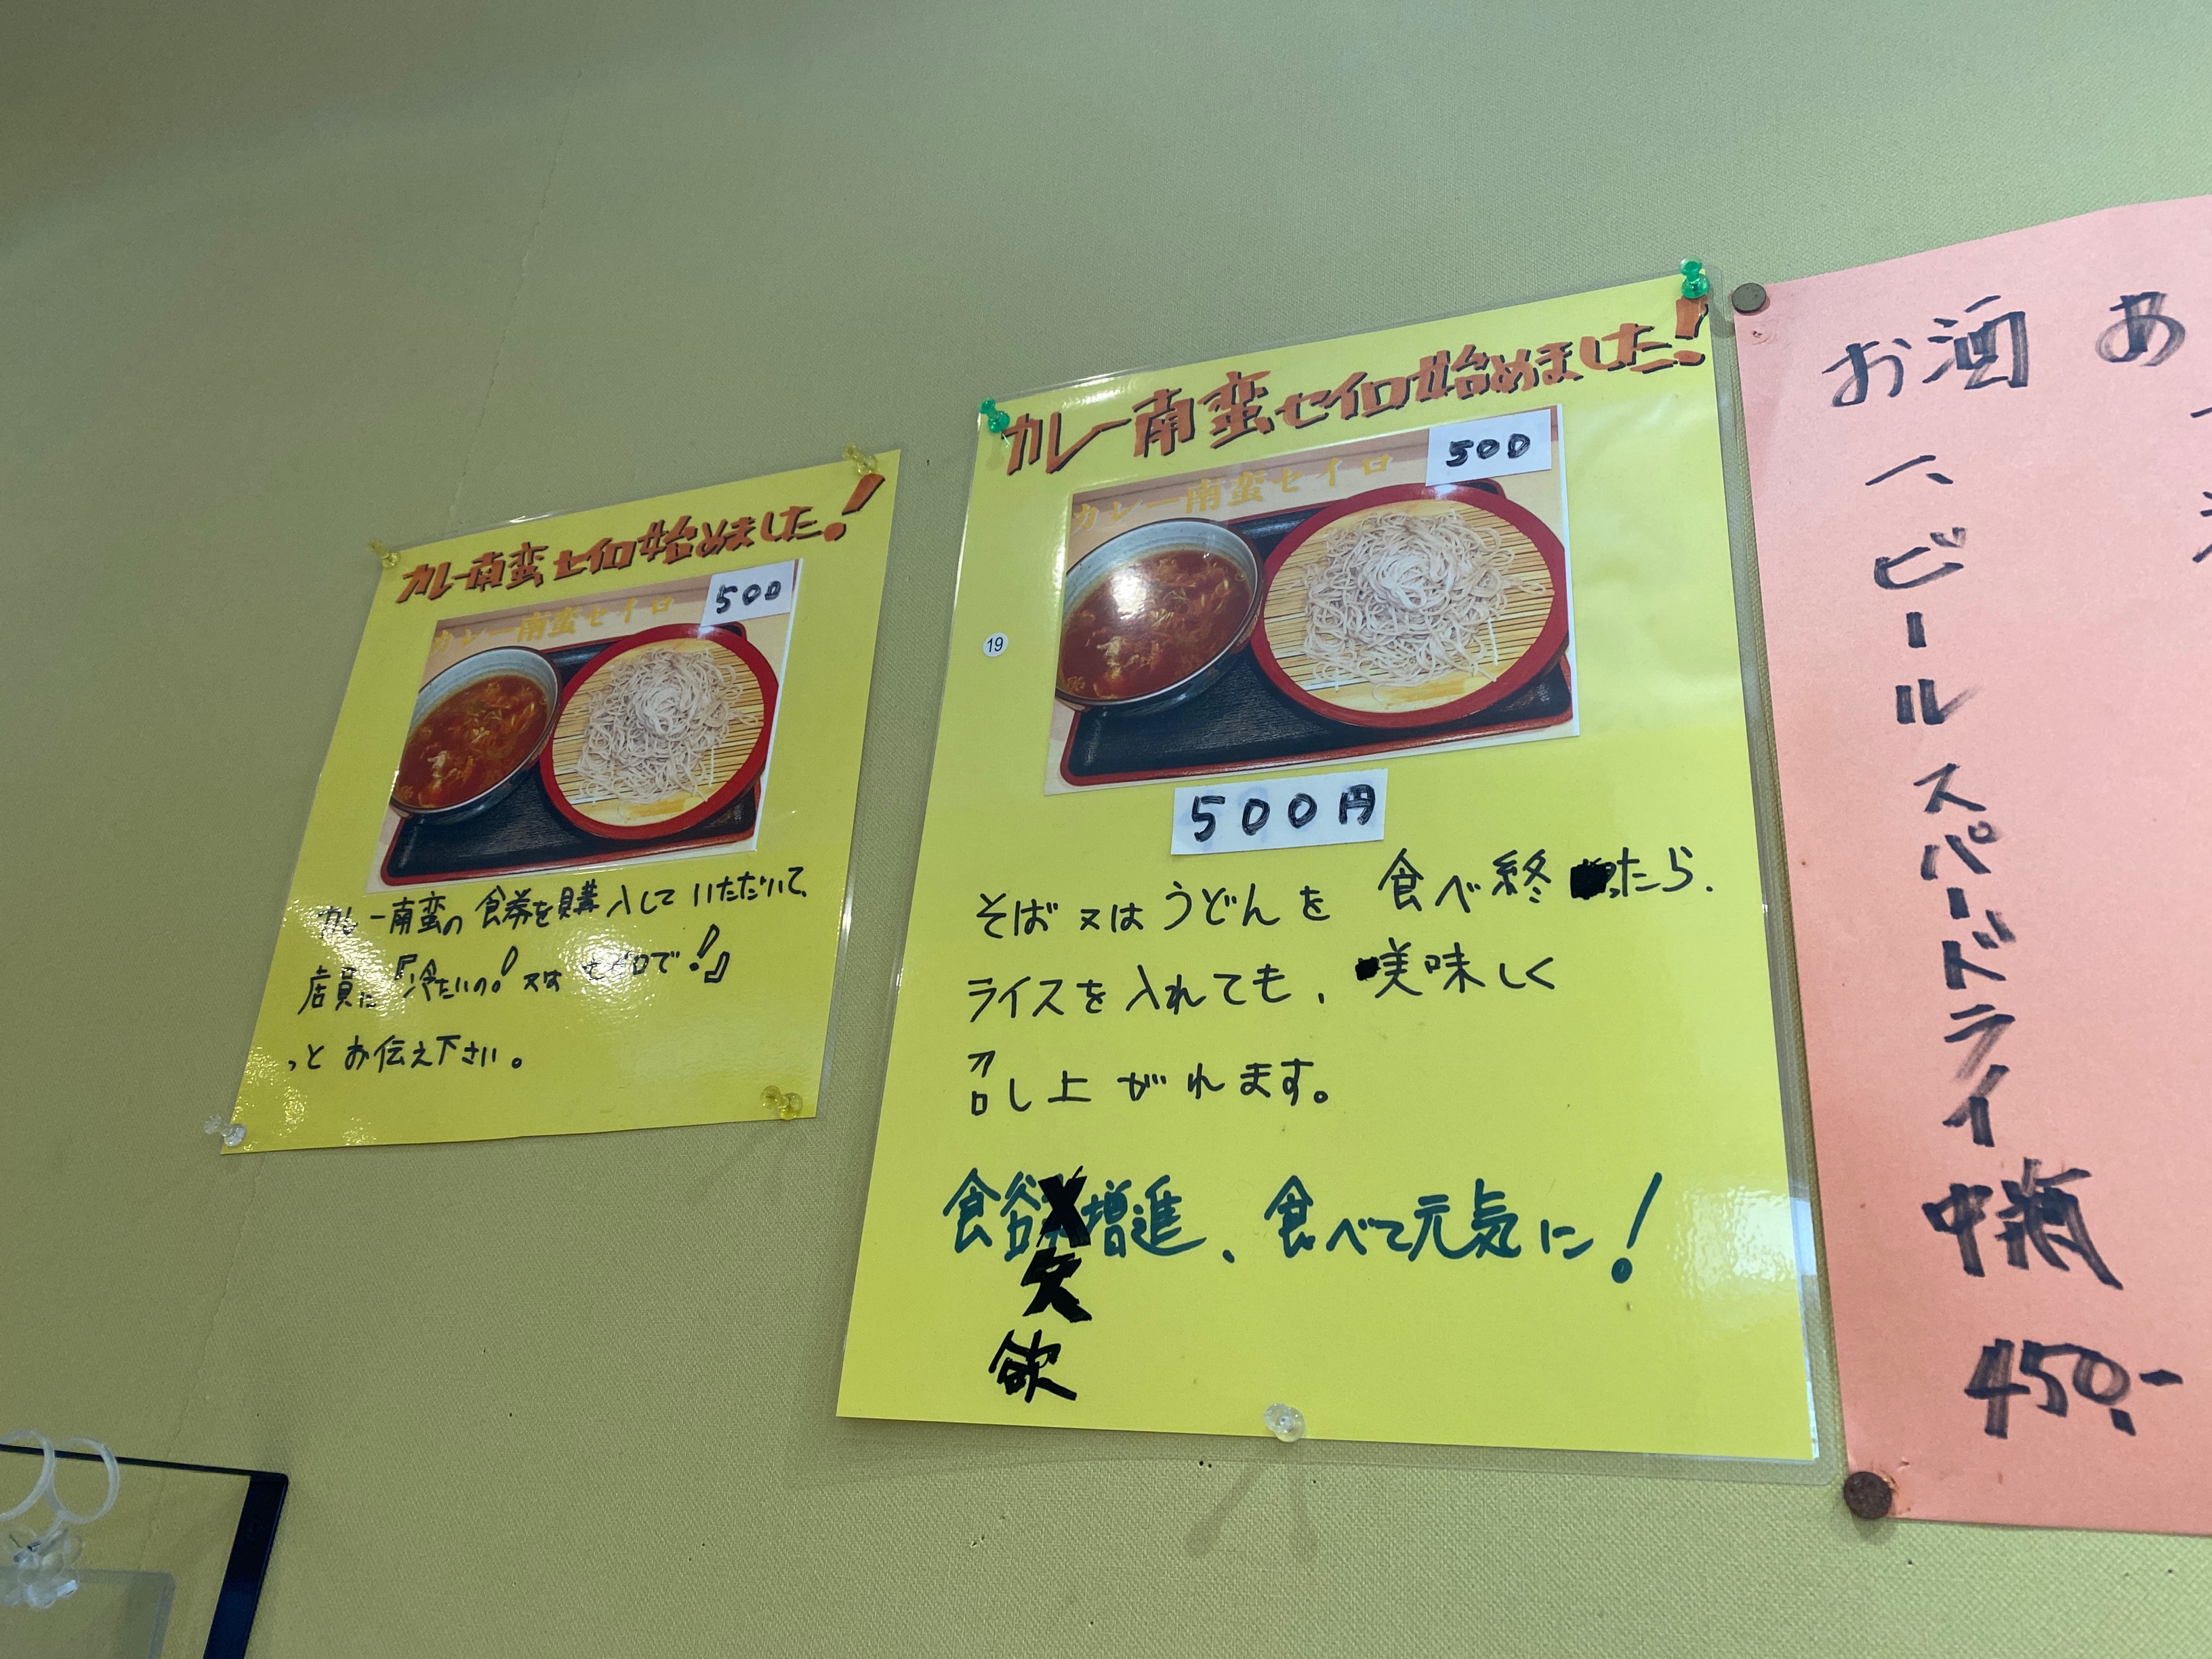 カレー南蛮セイロ始めました!
カレー南蛮セイロ
500
カレー南蛮の食券を購入していただいて、
店員に『冷たいの!又はセイロで!』
っとお伝え下さい。
カレー南蛮セイロ始めました!
カレー南蛮セイロ
500
19
500円
そば又はうどんを食べ終ったら、
ライスを入れても、美味しく
召し上がれます。
食増進、食べて元気に!
欠
欲
お酒
ビールスパードライ中瓶
450.-
あ